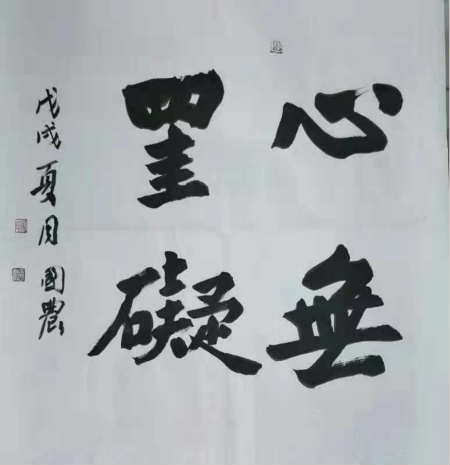 心無
罣礙
戊戌夏月國農